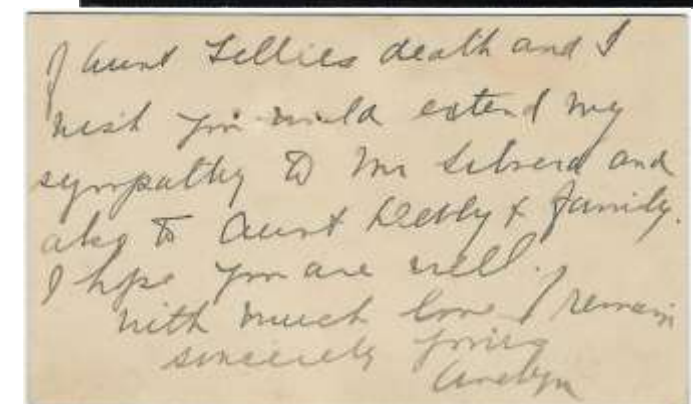 of Aunt Lillies death and I
wish you would extend my
sympathy to Mr and
also to Aunt Debby & family.
I hope you are well.
with much love I remain
sincerely yours